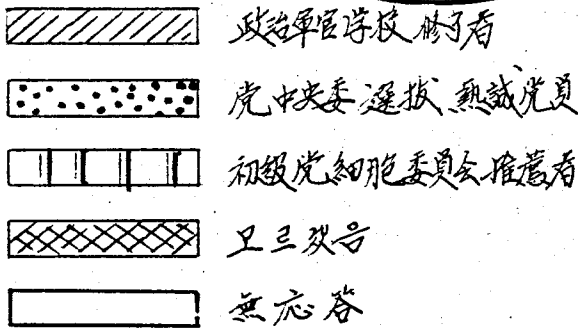 政治軍官学校 修了者
党中央委 選抜 熱誠党員
初級党細胞委員会 推薦者
모르겠음
無応答